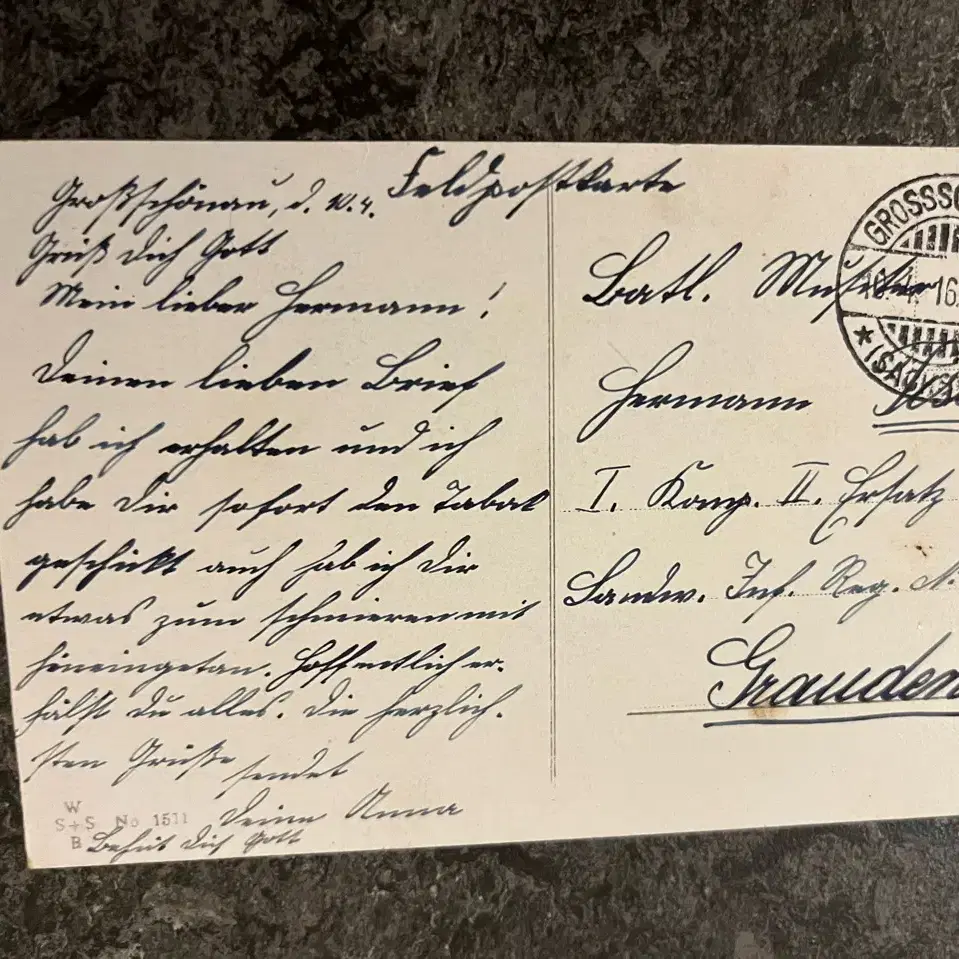 Feldpostkarte
Großschönau, d. 10.4.
Grüß Dich Gott
Mein lieber Hermann!
Deinen lieben Brief
hab ich erhalten und ich
habe Dir sofort den Tabak
geschickt auch hab ich Dir
etwas zum schmieren mit
hineingetan. Hoffentlich er-
hälst Du alles. Die herzlich-
sten Grüße sendet
Deine Anna
Behüt Dich Gott
W
S+S No 1511
B
GROSSSC
10.4.16.
* (SACHS
Batl. Musketier
Hermann
I. Komp. II. Ersatz
Landw. Inf. Reg. N.
Grauden